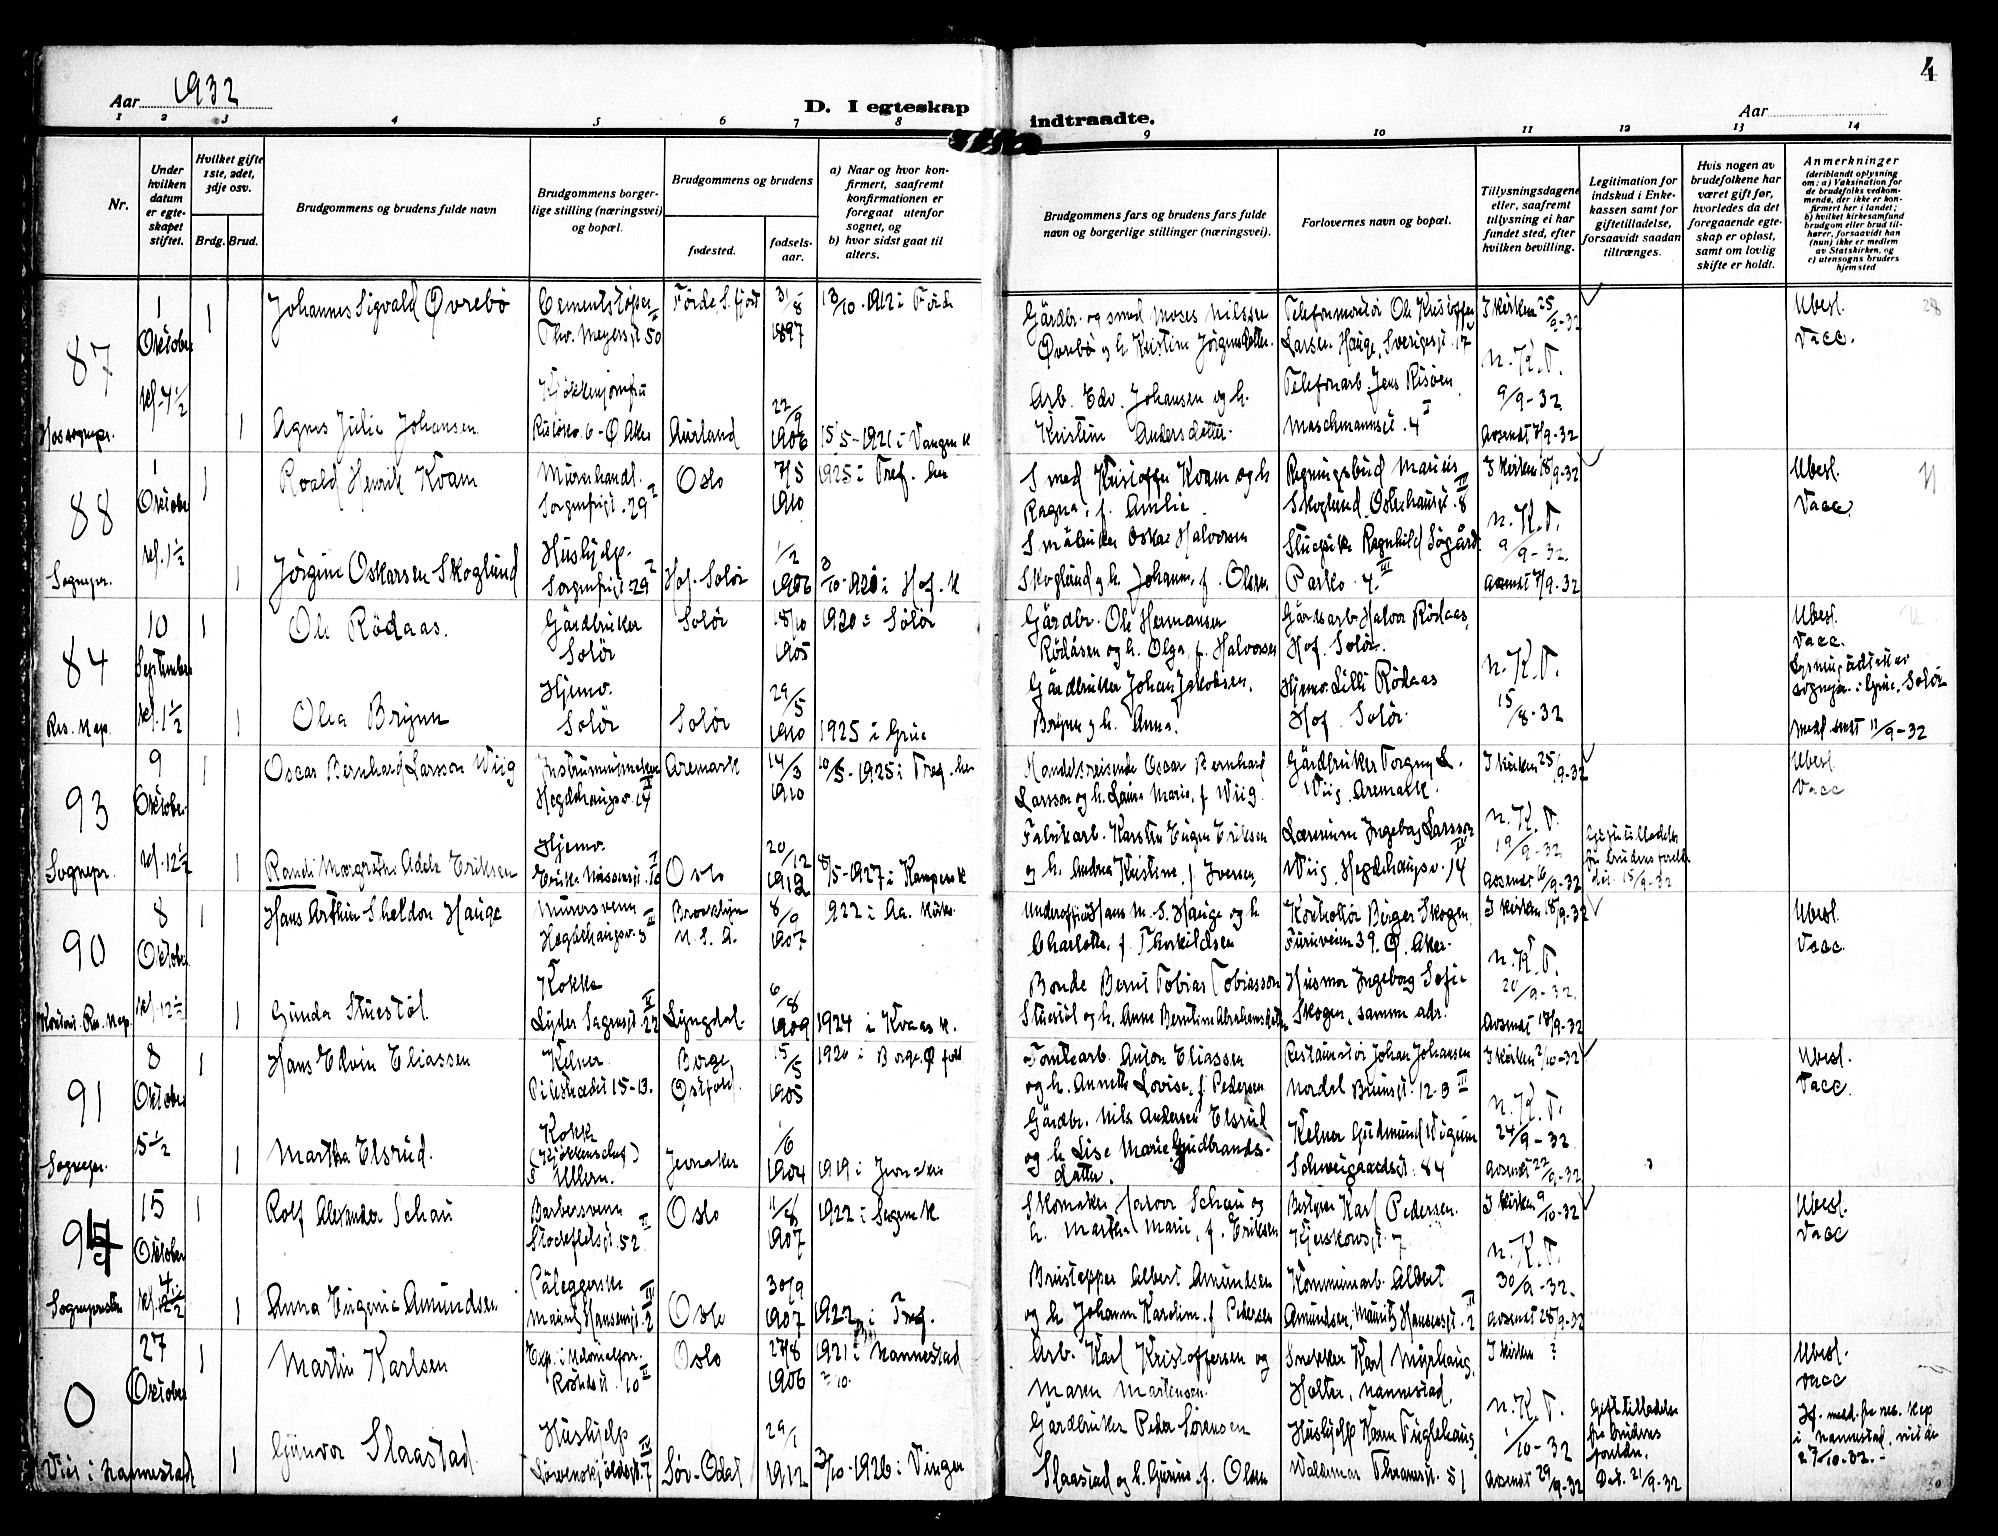 4
Aar 1932
D. I egteskap
indtraadte.
Aar
1 2 3 4 5 6 7 8
9 10 11 12 13 14
Nr.
Under hvilken datum er egteskapet stiftet.
Hvilket gifte 1ste, 2det, 3dje osv.
Brdg. Brud.
Brudgommens og brudens fulde navn
Brudgommens borgerlige stilling (næringsvei) og bopæl.
Brudgommens og brudens
fødested. fødselsaar.
a) Naar og hvor konfirmert, saafremt konfirmationen er foregaat utenfor sognet, og
b) hvor sidst gaat til alters.
Brudgommens fars og brudens fars fulde navn og borgerlige stillinger (næringsvei).
Forlovernes navn og bopæl.
Tillysningsdagene eller, saafremt tillysning ei har fundet sted, efter hvilken bevilling.
Legitimation for indskud i Enkekassen samt for giftetilladelse, forsaavidt saadan tiltrænges.
Hvis nogen av brudefolkene har været gift før, hvorledes da det foregaaende egteskap er opløst, samt om lovlig skifte er holdt.
Anmerkninger (deriblandt oplysning om: a) Vaksination for de brudefolks vedkommende, der ikke er konfirmert her i landet; b) hvilket kirkesamfund brudgom eller brud tilhører, forsaavidt han (hun) ikke er medlem av Statskirken, og c) utensogns bruders hjemsted
87
1 Oktober kl. 7 1/2
1
Johannes Sigvald Øvrebø
Cementstøper
Thv. Meyersgt 50
Førde S. fjord
31/8 1897
13/10-1912 i Førde
Gårdbr. og smed Moses Nilssen
Øvrebø og h. Kristine Jørgensdatter.
Telefonmontør Ole Kristoffer
Larsen Hauge, Sverigesgt. 17
I kirken 25/9-32
Ubesl.
Vacc.
1
Agnes Julie Johansen
Kjøkkenjomfru
Aurland
22/9 1906
15/5-1921 i Vangen k
Arb. Edv. Johansen og h.
Kristine Andersdatter.
Telefonarb. Jens Risøen
Maschmannsgt. 4
N.K.T.
9/9-32
Avsendt 7/9-32
88
Sogнepr.
1 Oktober kl. 1 1/2
1
Roald Henrik Kvam
Murerhandl.
Sorgenfrigt. 29
Oslo
7/5 1910
1925 i Tref. her
Smed Kristoffer Kvam og h
Ragna, f. Amlie.
Regningsbud Marius
Skoglund, Osterhausgt. 8
I kirken 18/9-32
Ubesl.
Vacc.
1
Jørgine Oskarsen Skoglund
Hushjelp.
Sorgenfrigt. 29
Hof. Solør
1/2 1906
3/10-1920 i Hof. k
Småbruker Oskar Halvorsen
Skoglund og h. Johanne, f. Olsen
Stuepike Ragnhild Søgård
Parkv. 4.
N.K.T.
9/9-32
Avsendt 7/9-32
84
Res. Kap.
10 September kl. 1 1/2
1
Ole Rödaas.
Gårdbruker
Solør
Solør
18/10 1905
1920 i Solør
Gårdbr. Ole Hermansen
Rödåsen og h. Olga, f. Halvorsen
Gårdsarb. Halvor Rödaas,
Hof. Solør.
Ubesl.
Vacc.
1
Olea Brynn
Hjemv.
Solør
Solør
29/5 1910
1925 i Grue
Gårdbruker Johan Jakobsen.
Brynn og h. Anna.
Hjemv. Lilli Rödaas
Hof. Solør.
N.K.T.
15/8-32
Medl. sendt 11/9-32
93
Sognepr.
9 Oktober kl. 12 1/2
1
Oscar Bernhard Larsson Wiig
Instrumentmaker
Hegdehaugsv. 14
Aremark
14/3 1910
10/5-1925 i Tref. her
Handelsreisende Oscar Bernhard
Larsson og h. Laura Marie, f. Wiig.
Gårdbruker Torgny L.
Wiig. Aremark.
I kirken 25/9-32
Ubesl.
Vacc
1
Randi Margrethe Adele Eriksen
Hjemv.
Oslo
20/12 1912
8/5-1927 i Kampen k
Fabrikarb. Karsten Eugen Eriksen
og h. Andrea Kristine, f. Iversen,
Lærerinne Ingeborg Larsson
Wiig. Hegdehaugsv. 14
N.K.T.
19/9-32
Avsendt 16/9-32
Giftetilladelse fra brudens foreldre. 15/9-32
90
8 Oktober kl. 12 1/2
1
Hans Arthur Sheldon Hauge
Murersvenn
Hegdehaugsv. 5
Brooklyn
U.S.A.
8/9 1907
1922 i Aa. kirke.
Underoffiser Hans M. S. Hauge og h
Charlotte, f. Thorkildsen
Kontrollør Birger Skogen
Furuveien 39. Ø. Aker.
I kirken 18/9-32
Ubesl.
Vacc.
1
Gunda Stuestøl
Kokke
Lyder Sagensgt. 22
Lyngdal.
6/8 1909
1924 i Kvaas k.
Bonde Bernt Tobias Tobiasson
Stuestøl og h. Anne Berntine Abrahamsdatter
Husmor Ingeborg Sofie
Skogen, samme adr.
N.K.T.
20/9-32.
Avsendt 18/9-32
91
Sognepr.
8 Oktober 5 1/2
1
Hans Edvin Eliassen
Kelner
Pilestredet 15-13.
Borge
Østfold.
15/5 1905
1920 i Borge. Ø fold
Tomtearb. Anton Eliassen
og h. Annette Lovise, f. Pedersen
Restauratør Johan Johansen
Nordal Brunsgt. 12-3
I kirken 2/10-32
Ubesl.
Vacc
1
Martha Elsrud.
Kokk
(Kjøkkenchef)
Ullern.
Jevnaker
1/6 1904
1919 i Jevnaker
Gårdbr. Nils Andersen Elsrud
og h Lise Marie Gudbrandsdatter.
Kelner Gudmund Vigum
Schweigaardsgt. 84
N.K.T.
24/9-32
Avsendt 22/9-32
94
15 Oktober kl. 4
1
Rolf Alexander Schau
Barbersvenn
Stockfletsgt. 52.
Oslo
11/8 1907
1922 i Sagene k
Skomaker Halvor Schau og
h. Marthe Marie, f. Eriksen
Bestyrer Karl Pedersen.
Kjerskowsgt. 7
I kirken 9/10-32
Ubesl.
Vacc
1
Anna Eugenie Amundsen
Påleggerske
Mauritz Hansensgt. 2
Oslo
30/9 1907
1922 i Tref.
Brustapper Albert Amundsen
og h Johanne Karoline, f. Pedersen
Kommunarb. Albert
Amundsen, Mauritz Hansensgt. 2
N.K.T.
30/9-32.
Avsendt 28/9-32
0
Viet i Nannestad
27 Oktober
1
Martin Karlsen
Oslo
27/8 1906
1921 i Nannestad
Arb. Karl Kristoffersen og
Maren Martensen.
Snekker Karl Myrhaug,
Holter, Nannestad.
I kirken ?
Ubesl.
Vacc
1
Gunvor Slaastad
Hushjelp
Løvenskjoldsgt. 7
Sør-Odal
29/1 1912
3/10-1926 i Vinger
Gårdbruker Peder Sørensen
Slaastad og h. Gurine, f. Olsen
Hushjelp Karen Fuglehaug,
Waldemar Thranesgt. 51
N.K.T.
1/10-32
Avsendt 29/9-32
Giftetilladelse fra brudens foreldre. Dat. 21/9-32
If. med. fra res. kap i Nannestad, viet der 27/10-32.